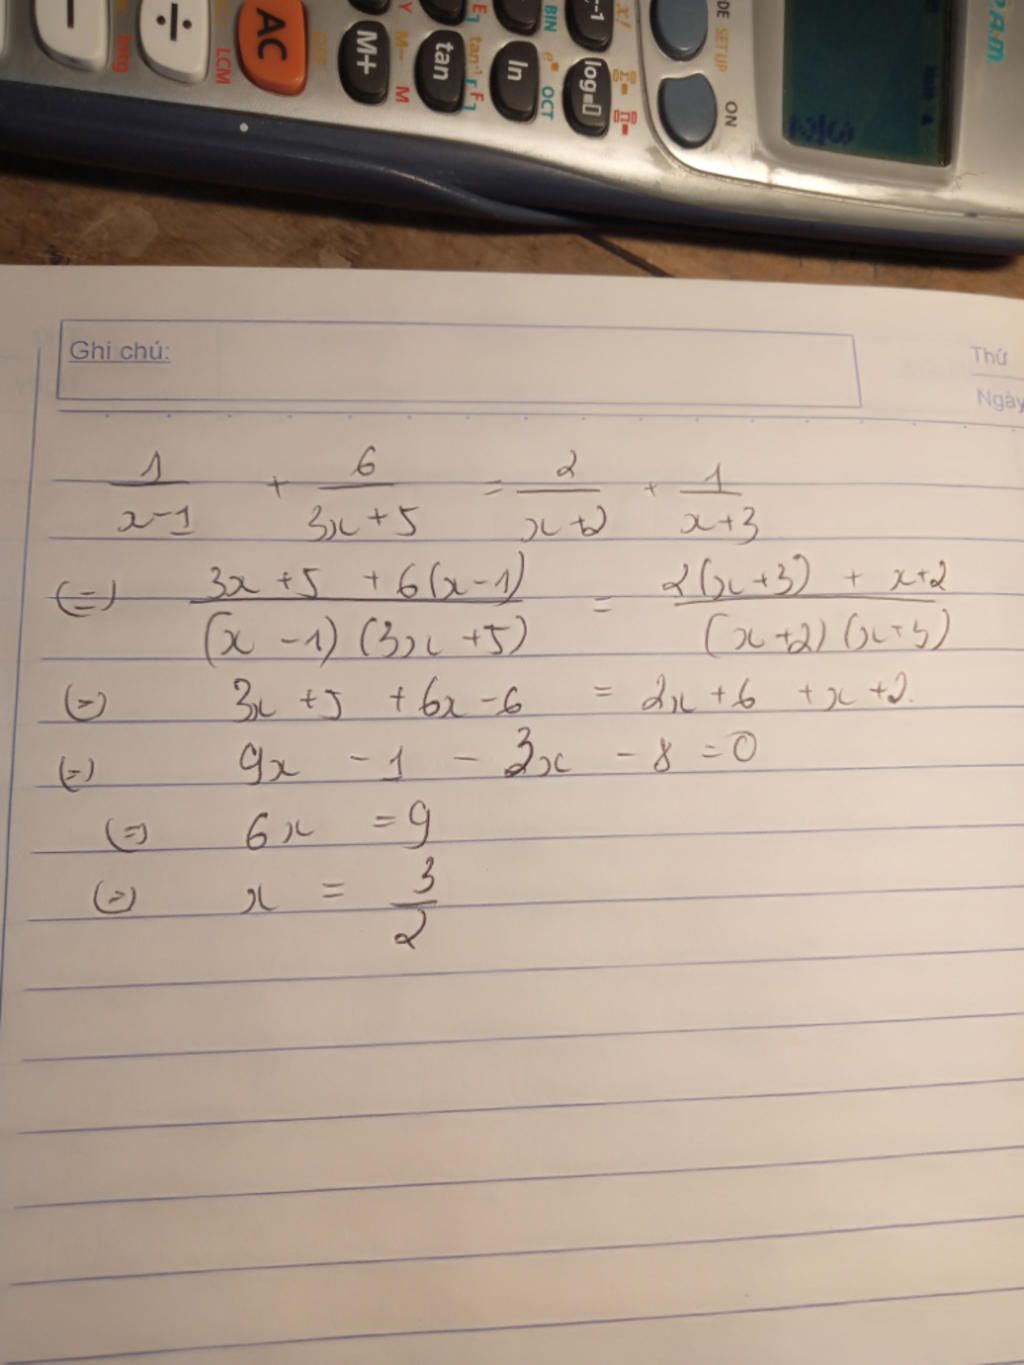 DE SETUP ON
x! Σ= Π=
log ln
BIN OCT
tan tan⁻¹
M+ M- M
AC OFF
LCM ÷
Intg −
Ghi chú:
Thứ
Ngày
1/(x-1) + 6/(3x+5) = 2/(x+2) + 1/(x+3)
(=) (3x+5 + 6(x-1))/((x-1)(3x+5)) = (2(x+3) + x+2)/((x+2)(x+3))
(=) 3x+5 + 6x-6 = 2x+6 + x+2.
(=) 9x - 1 - 3x - 8 = 0
(=) 6x = 9
(=) x = 3/2